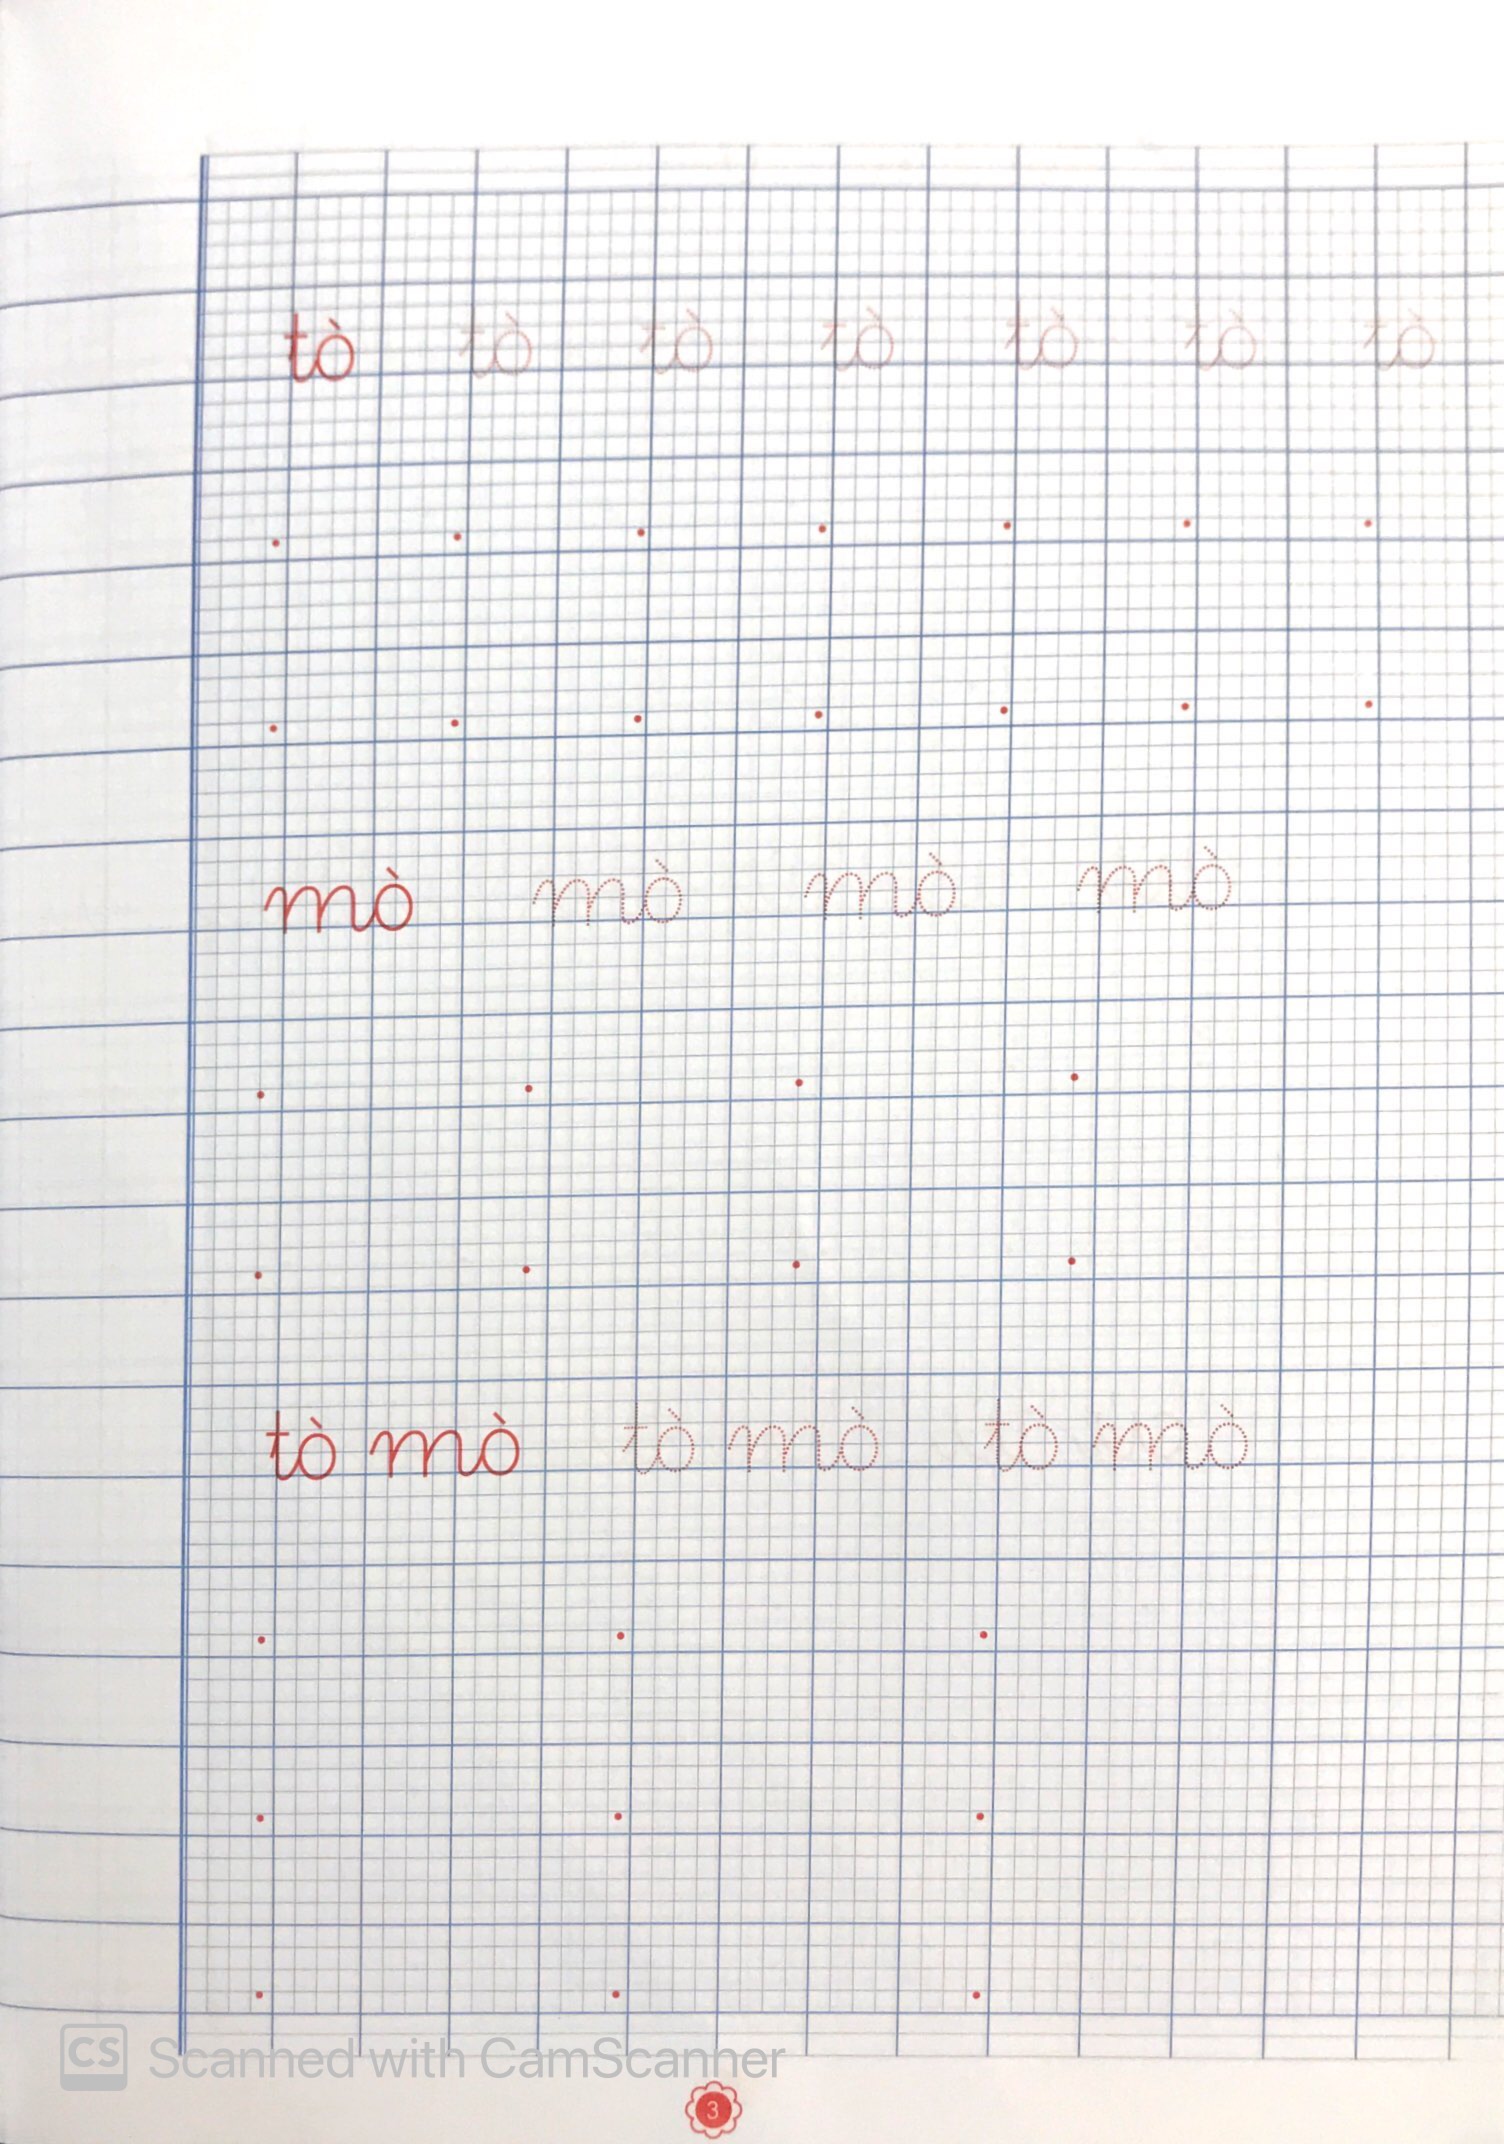 tò tò tò tò tò tò tò
mò mò mò mò
tò mò tò mò tò mò
CS Scanned with CamScanner
3